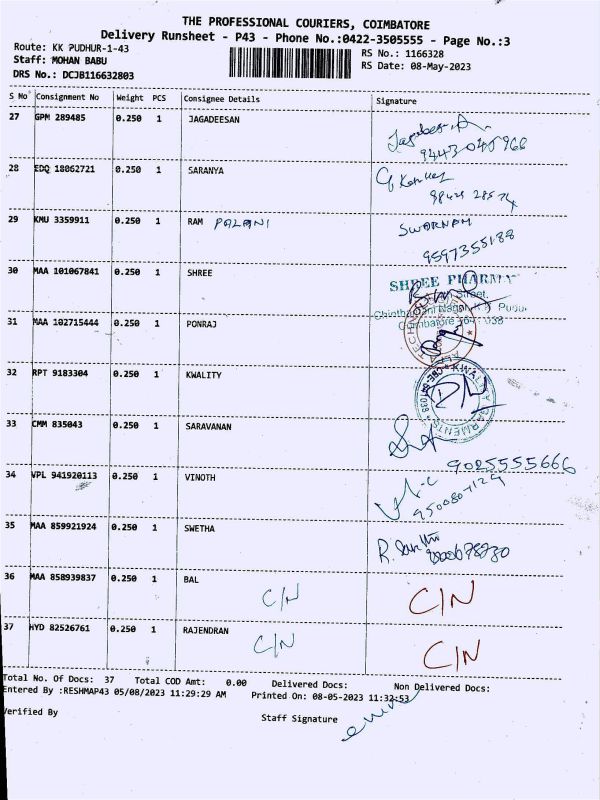 THE PROFESSIONAL COURIERS, COIMBATORE
Delivery Runsheet - P43 - Phone No.:0422-3505555 - Page No.:3
Route: KK PUDHUR-1-43
RS No.: 1166328
Staff: MOHAN BABU
RS Date: 08-May-2023
DRS No.: DCJB116632803
S No Consignment No Weight PCS Consignee Details Signature
27 GPM 289485 0.250 1 JAGADEESAN
9443045966
28 EDQ 18062721 0.250 1 SARANYA
29 KMU 3359911 0.250 1 RAM PALANI SWARNAM
9597355188
30 MAA 101067841 0.250 1 SHREE SHREE PHARMA
31 MAA 102715444 0.250 1 PONRAJ
32 RPT 9183304 0.250 1 KWALITY
33 CMM 835043 0.250 1 SARAVANAN
9025555666
34 VPL 941920113 0.250 1 VINOTH
35 MAA 859921924 0.250 1 SWETHA
36 MAA 858939837 0.250 1 BAL C/N C/N
37 HYD 82526761 0.250 1 RAJENDRAN C/N C/N
Total No. Of Docs: 37 Total COD Amt: 0.00 Delivered Docs: Non Delivered Docs:
Entered By :RESHMAP43 05/08/2023 11:29:29 AM Printed On: 08-05-2023 11:32:53
Verified By Staff Signature